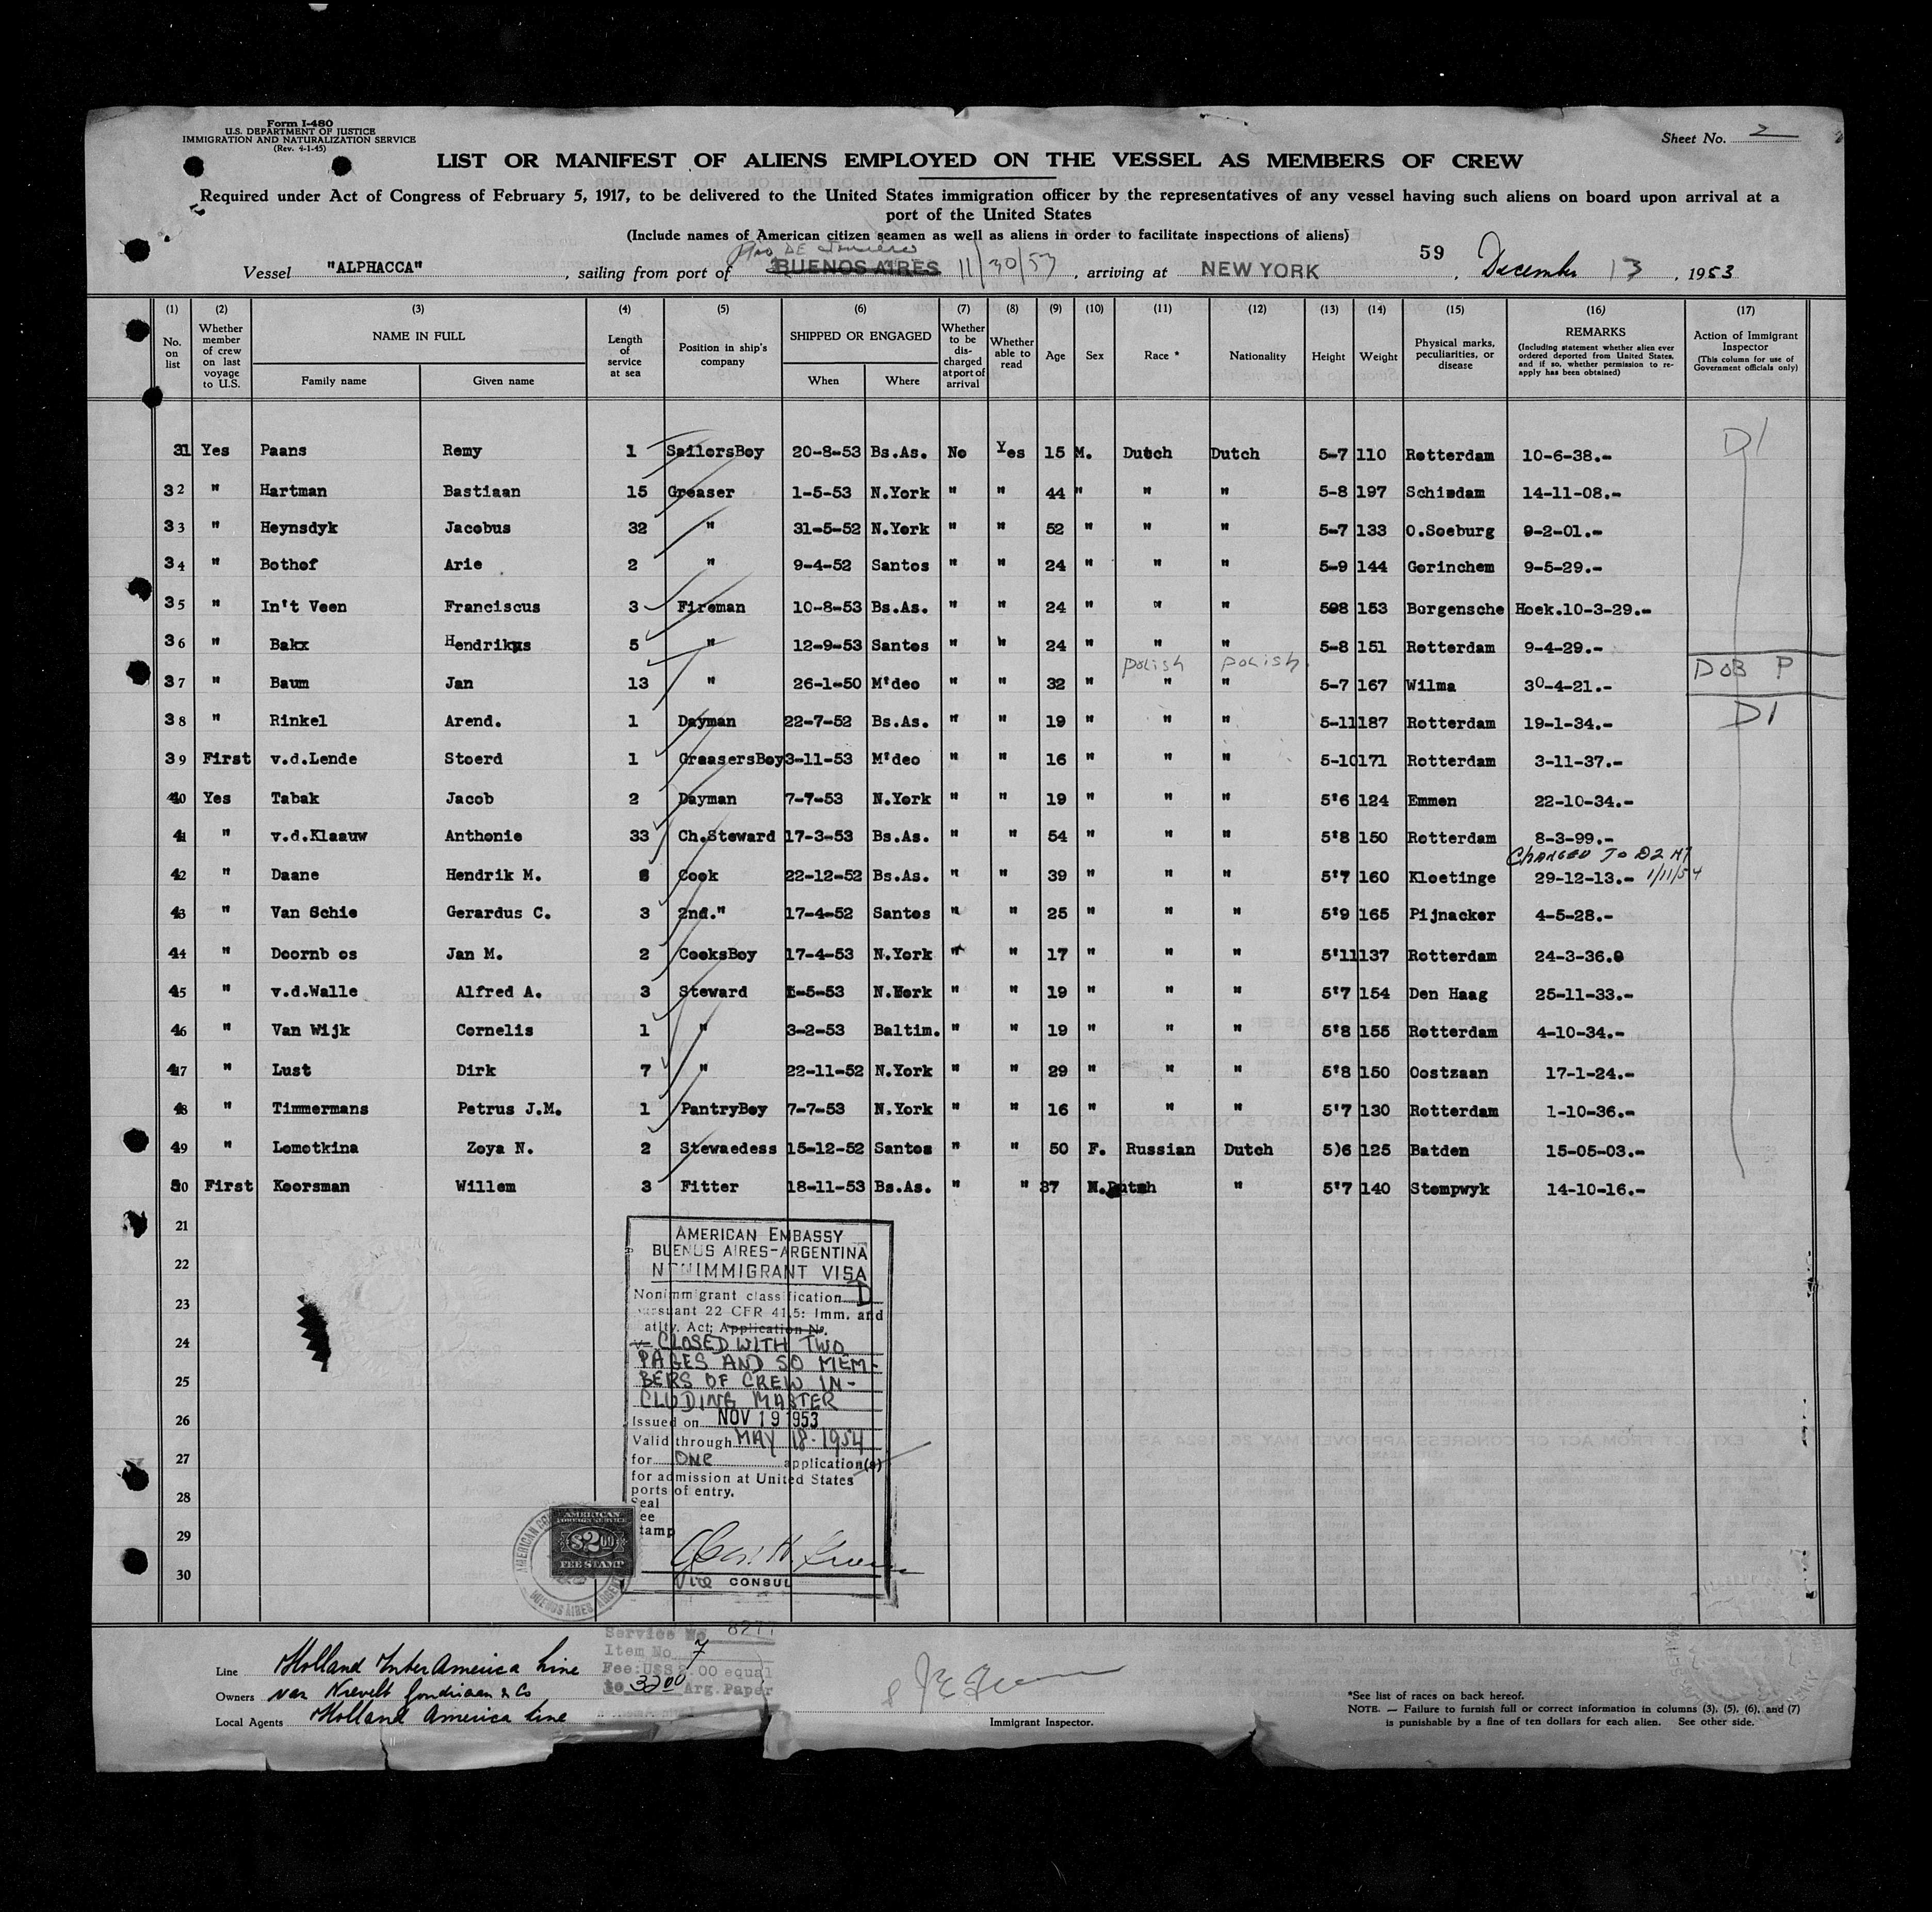 Form I-480
U.S. DEPARTMENT OF JUSTICE
IMMIGRATION AND NATURALIZATION SERVICE
(Rev. 4-1-45)
Sheet No. 2
LIST OR MANIFEST OF ALIENS EMPLOYED ON THE VESSEL AS MEMBERS OF CREW
Required under Act of Congress of February 5, 1917, to be delivered to the United States immigration officer by the representatives of any vessel having such aliens on board upon arrival at a
port of the United States
(Include names of American citizen seamen as well as aliens in order to facilitate inspections of aliens)
Rio DE Janeiro
59
Vessel "ALPHACCA", sailing from port of BUENOS AIRES 11/30/53, arriving at NEW YORK, December 13, 1953
(1) (2) (3) (4) (5) (6) (7) (8) (9) (10) (11) (12) (13) (14) (15) (16) (17)
No. on list
Whether member of crew on last voyage to U.S.
NAME IN FULL
Family name
Given name
Length of service at sea
Position in ship's company
SHIPPED OR ENGAGED
When
Where
Whether to be discharged at port of arrival
Whether able to read
Age
Sex
Race *
Nationality
Height
Weight
Physical marks, peculiarities, or disease
REMARKS
(Including statement whether alien ever ordered deported from United States, and if so, whether permission to re-apply has been obtained)
Action of Immigrant Inspector
(This column for use of Government officials only)
31 Yes Paans Remy 1 SailorsBoy 20-8-53 Bs.As. No Yes 15 M. Dutch Dutch 5-7 110 Rotterdam 10-6-38.- D1
32 " Hartman Bastiaan 15 Greaser 1-5-53 N.York " " 44 " " " 5-8 197 Schiedam 14-11-08.-
33 " Heynsdyk Jacobus 32 " 31-5-52 N.York " " 52 " " " 5-7 133 O.Soeburg 9-2-01.-
34 " Bothof Arie 2 " 9-4-52 Santos " " 24 " " " 5-9 144 Gorinchem 9-5-29.-
35 " In't Veen Franciscus 3 Fireman 10-8-53 Bs.As. " " 24 " " " 508 153 Borgensche Hoek.10-3-29.-
36 " Bakx Hendrikus 5 " 12-9-53 Santos " " 24 " " " 5-8 151 Rotterdam 9-4-29.-
polish polish
37 " Baum Jan 13 " 26-1-50 M'deo " " 32 " " " 5-7 167 Wilma 30-4-21.- DOB P
38 " Rinkel Arend. 1 Dayman 22-7-52 Bs.As. " " 19 " " " 5-11 187 Rotterdam 19-1-34.- D1
39 First v.d.Lende Stoerd 1 GreasersBoy 3-11-53 M'deo " " 16 " " " 5-10 171 Rotterdam 3-11-37.-
40 Yes Tabak Jacob 2 Dayman 7-7-53 N.York " " 19 " " " 5'6 124 Emmen 22-10-34.-
41 " v.d.Klaauw Anthonie 33 Ch.Steward 17-3-53 Bs.As. " " 54 " " " 5'8 150 Rotterdam 8-3-99.-
CHANGED TO D2 NY
42 " Daane Hendrik M. 8 Cook 22-12-52 Bs.As. " " 39 " " " 5'7 160 Kloetinge 29-12-13.- 1/11/54
43 " Van Schie Gerardus C. 3 2nd." 17-4-52 Santos " " 25 " " " 5'9 165 Pijnacker 4-5-28.-
44 " Doornb os Jan M. 2 CooksBoy 17-4-53 N.York " " 17 " " " 5'11 137 Rotterdam 24-3-36.
45 " v.d.Walle Alfred A. 3 Steward 1-5-53 N.York " " 19 " " " 5'7 154 Den Haag 25-11-33.-
46 " Van Wijk Cornelis 1 " 3-2-53 Baltim. " " 19 " " " 5'8 155 Rotterdam 4-10-34.-
47 " Lust Dirk 7 " 22-11-52 N.York " " 29 " " " 5'8 150 Oostzaan 17-1-24.-
48 " Timmermans Petrus J.M. 1 PantryBoy 7-7-53 N.York " " 16 " " " 5'7 130 Rotterdam 1-10-36.-
49 " Lomotkina Zoya N. 2 Stewaedess 15-12-52 Santos " " 50 F. Russian Dutch 5)6 125 Batden 15-05-03.-
50 First Koorsman Willem 3 Fitter 18-11-53 Bs.As. " " 37 M. Dutch " 5'7 140 Stompwyk 14-10-16.-
21
22
23
24
25
26
27
28
29
30
AMERICAN EMBASSY
BUENOS AIRES-ARGENTINA
NONIMMIGRANT VISA
Nonimmigrant classification D
pursuant 22 CFR 41.5: Imm. and
atlty. Act; Application No.
V- CLOSED WITH TWO
PAGES AND 50 MEM-
BERS OF CREW IN-
CLUDING MASTER
Issued on NOV 19 1953
Valid through MAY 18-1954
for ONE application(s)
for admission at United States
ports of entry.
Seal
Fee
Stamp
Vice CONSUL
AMERICAN
FOREIGN SERVICE
$2.00
FEE STAMP
BUENOS AIRES
Service No 8277
Item No 7
Fee: US$2.00 equal
to 32.00 Arg. Paper
Line Holland InterAmerica Line
Owners van Nievelt Goudriaan & Co
Local Agents Holland America Line
Immigrant Inspector.
*See list of races on back hereof.
NOTE. — Failure to furnish full or correct information in columns (3), (5), (6), and (7)
is punishable by a fine of ten dollars for each alien. See other side.